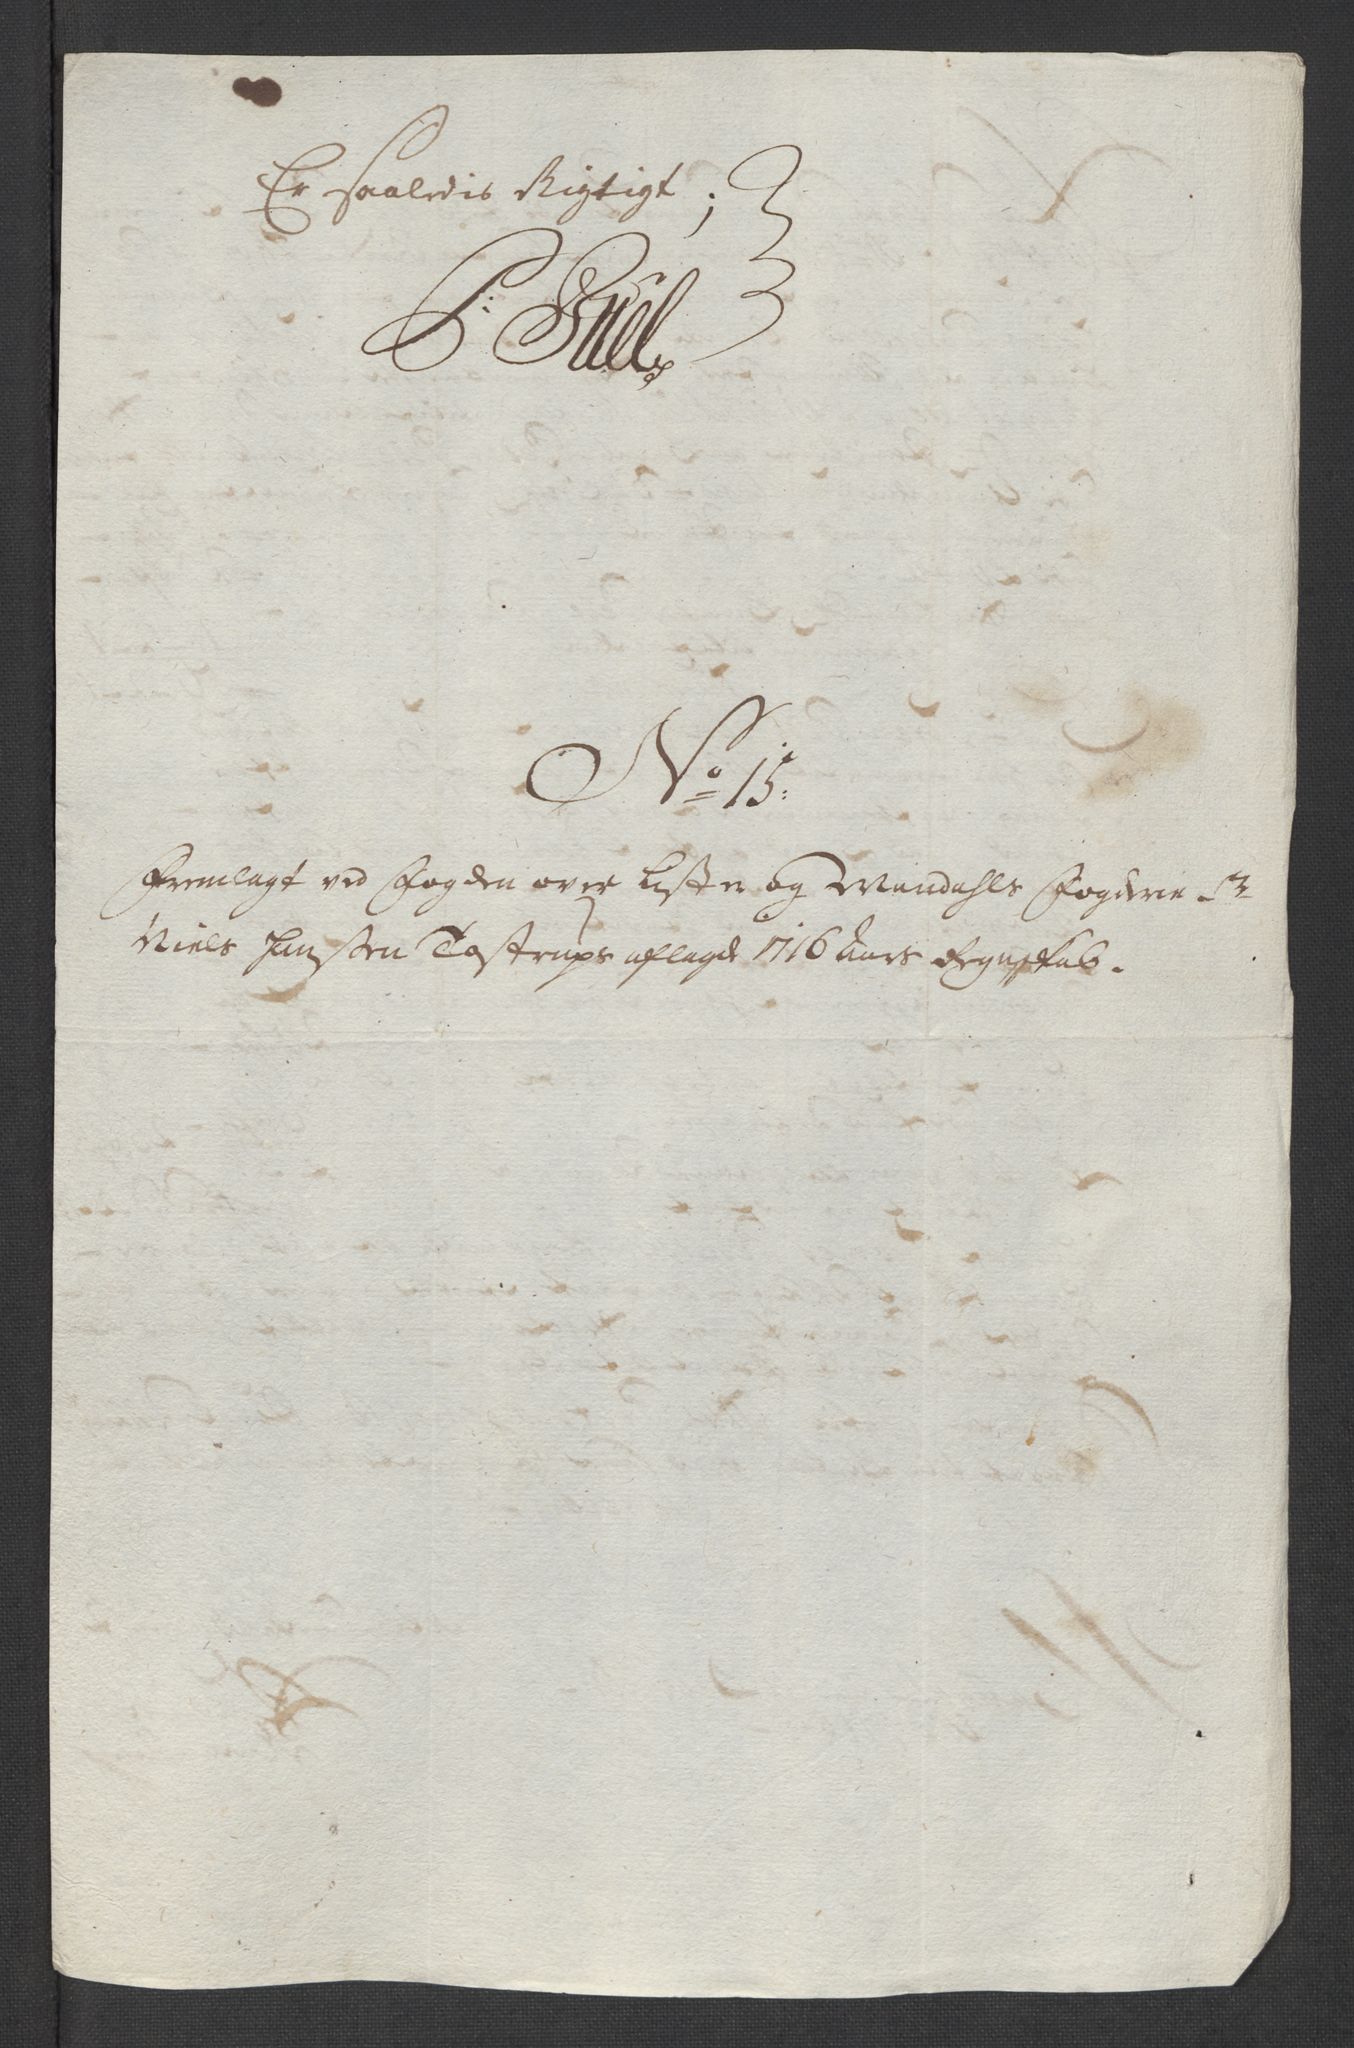 Er saaledis Rigtigt ;
S: Buel
No 15:
Fremlagt ved Fogden over Lister og Mandahls Fogderie Sr
Niels Hanssen Tostrups aflagde 1716 Aars Regnskab.